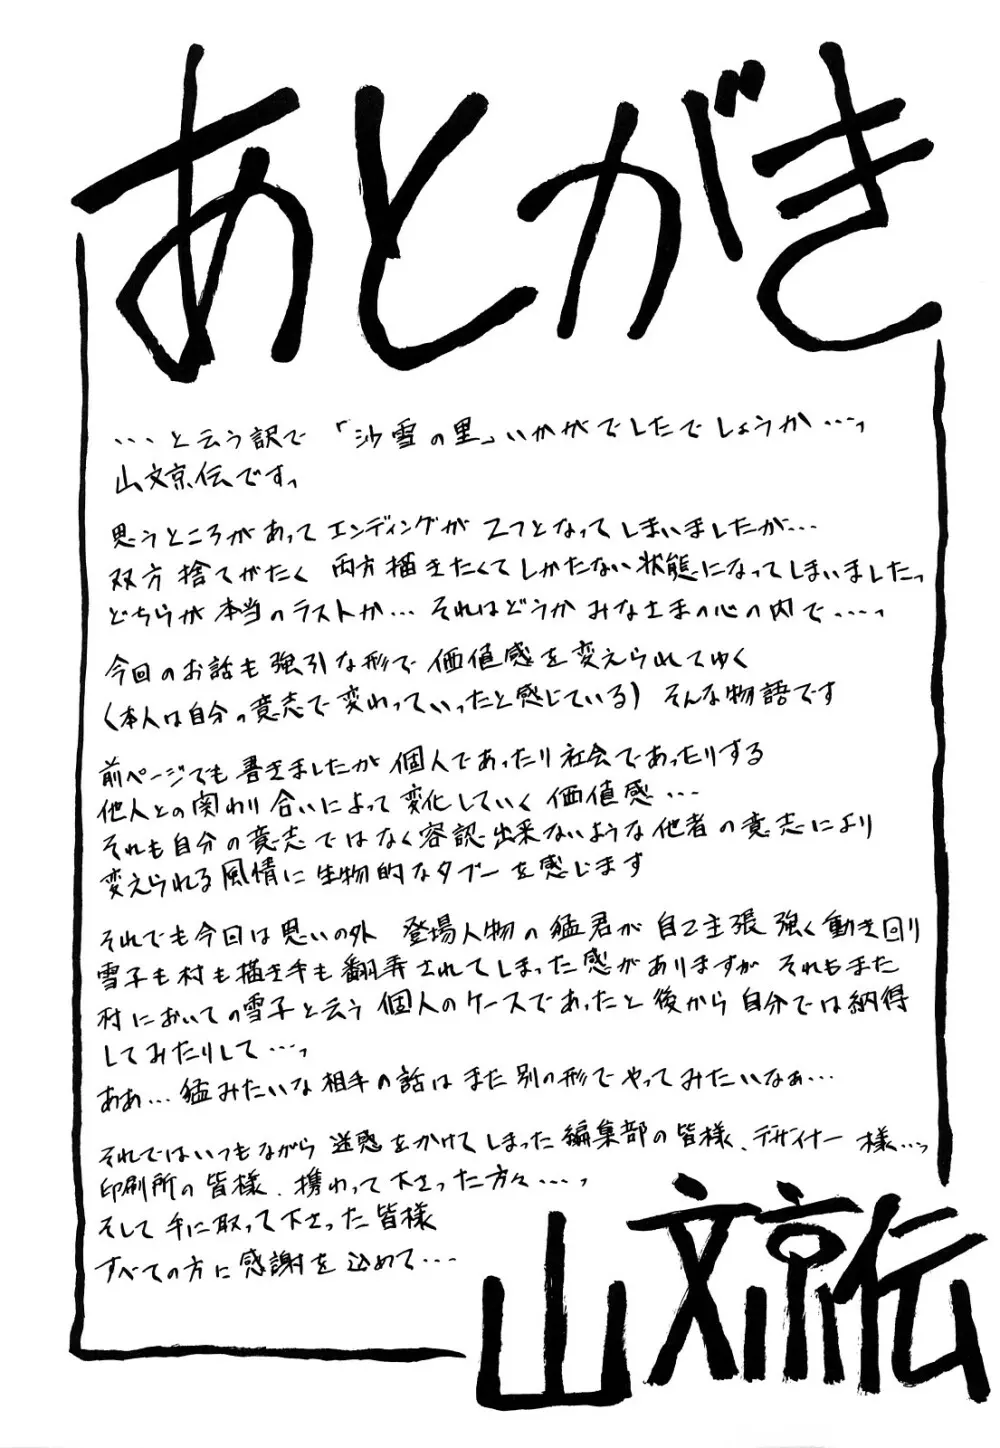 あとがき
…と云う訳で「沙雪の里」いかがでしたでしょうか…っ
山文京伝ですっ
思うところがあってエンディングが2つとなってしまいましたが…
双方捨てがたく両方描きたくてしかたない状態になってしまいましたっ
どちらが本当のラストか…それはどうかみなさまの心の内で…っ
今回のお話も強引な形で価値感を変えられてゆく
(本人は自分の意志で変わっていったと感じている)そんな物語です
前ページでも書きましたが個人であったり社会であったりする
他人との関わり合いによって変化していく価値感…
それも自分の意志ではなく容認出来ないような他者の意志により
変えられる風情に生物的なタブーを感じます
それでも今回は思いの外 登場人物の猛君が自己主張強く動き回り
雪子も村も描き手も翻弄されてしまった感がありますが それもまた
村においての雪子と云う個人のケースであったと後から自分では納得
してみたりして…っ
ああ…猛みたいな相手の話はまた別の形でやってみたいなぁ…
それではいつもながら迷惑をかけてしまった編集部の皆様、デザイナー様…っ
印刷所の皆様、携わって下さった方々…っ
そして手に取って下さった皆様
すべての方に感謝を込めて…
山文京伝